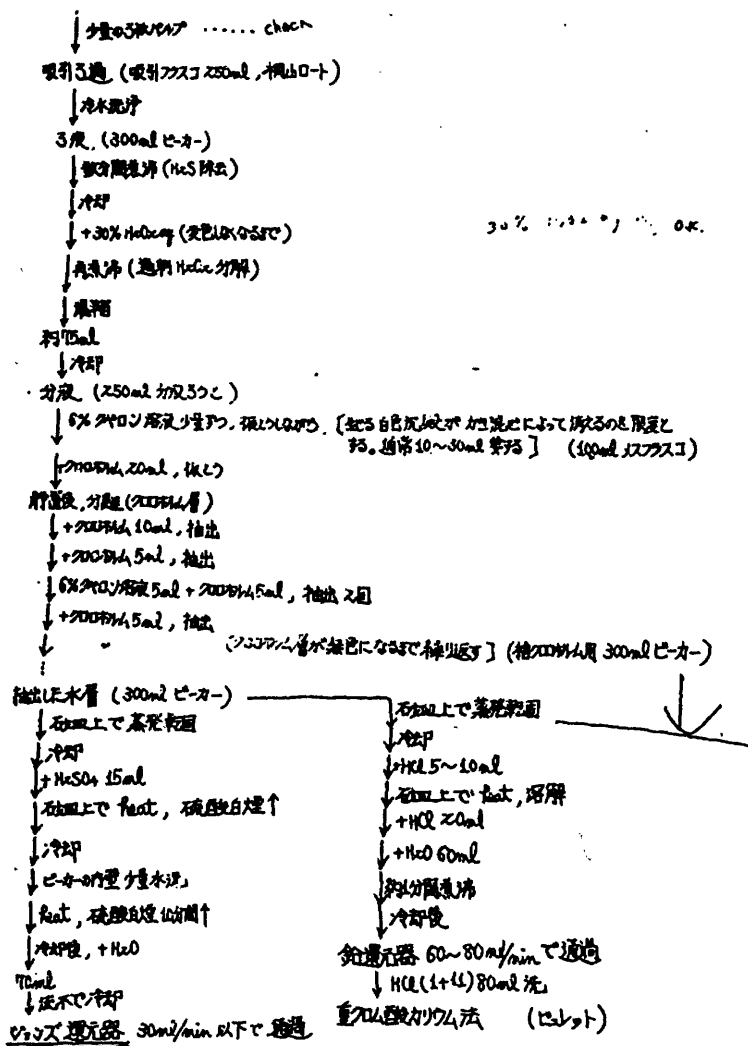 少量のろ紙パルプ ……
吸引ろ過 (吸引フラスコ 250ml, 桐山ロート)
冷水洗浄
ろ液, (300ml ビーカー)
数分間煮沸 (H2S 除去)
冷却
+30% H2O2 aq (変色しなくなるまで)
30% OK.
再煮沸 (過剰 H2O2 分解)
濃縮
約75ml
冷却
分液 (250ml 分液ろうと)
6% クペロン溶液少量ずつ, 振とうしながら. [生ずる白色沈殿が かき混ぜによって消えるのを限度と
する。通常10~30ml 要する] (100ml メスフラスコ)
+クロロホルム 20ml, 振とう
静置後, 分離 (クロロホルム層)
+クロロホルム 10ml, 抽出
+クロロホルム 5ml, 抽出
6%クペロン溶液 5ml + クロロホルム 5ml, 抽出 2回
+クロロホルム 5ml, 抽出
層が緑色になるまで繰り返す] (クロロホルム用 300ml ビーカー)
抽出した水層 (300ml ビーカー)
石皿上で蒸発乾固
冷却
+H2SO4 15ml
石皿上で heat, 硫酸白煙↑
冷却
ビーカーの内壁 少量水洗
heat, 硫酸白煙 10分間↑
冷却後, +H2O
70ml
流水で冷却
ジョンズ還元器 30ml/min 以下で通過
石皿上で蒸発乾固
冷却
+HCl 5~10ml
石皿上で heat, 溶解
+HCl 20ml
+H2O 60ml
約1分間煮沸
冷却後
鉛還元器 60~80ml/min で通過
HCl (1+11) 80ml 洗
重クロム酸カリウム法 (ビュレット)